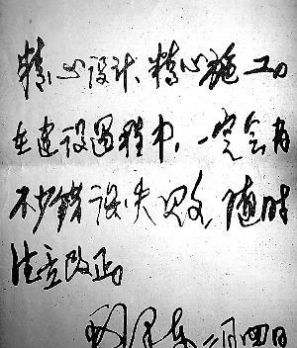 精心设计、精心施工。
在建设过程中，一定会有
不少错误失败，随时
注意改正。
毛泽东 二月四日